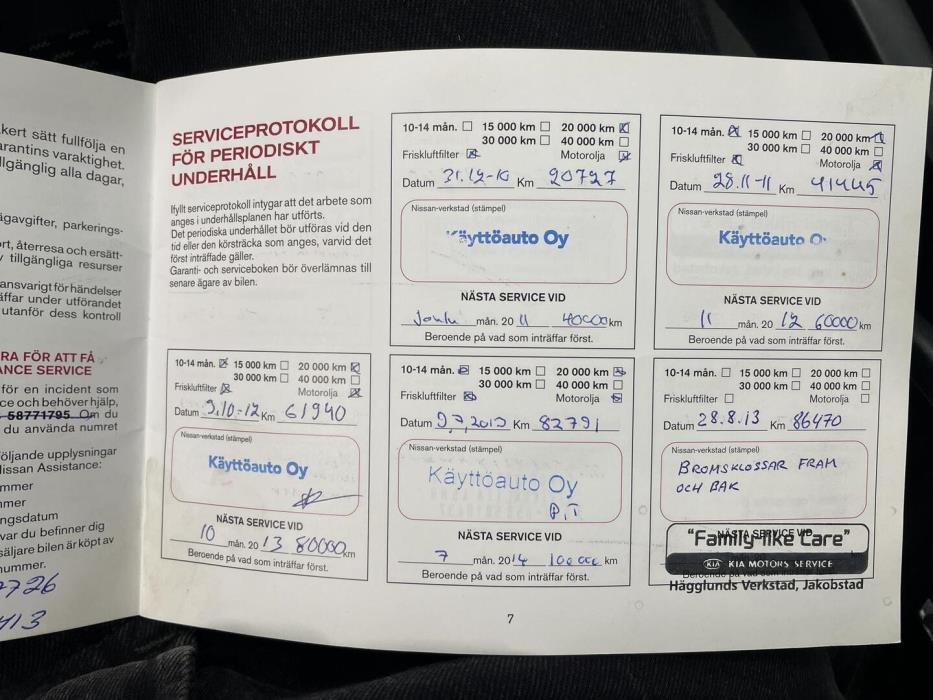 kert sätt fullfölja en
arantins varaktighet.
llgänglig alla dagar,
ägavgifter, parkerings-
ort, återresa och ersätt-
tillgängliga resurser
ansvarigt för händelser
äffar under utförandet
utanför dess kontroll
RA FÖR ATT FÅ
ANCE SERVICE
för en incident som
ce och behöver hjälp,
58771795 Om du
du använda numret
öljande upplysningar
lissan Assistance:
mmer
mer
ngsdatum
var du befinner dig
säljare bilen är köpt av
nummer.
7726
413
SERVICEPROTOKOLL
FÖR PERIODISKT
UNDERHÅLL
Ifyllt serviceprotokoll intygar att det arbete som
anges i underhållsplanen har utförts.
Det periodiska underhållet bör utföras vid den
tid eller den körsträcka som anges, varvid det
först inträffade gäller.
Garanti- och serviceboken bör överlämnas till
senare ägare av bilen.
10-14 mån. 15 000 km 20 000 km
30 000 km 40 000 km
Friskluftfilter Motorolja
Datum 31.12-10 Km 20727
Nissan-verkstad (stämpel)
Käyttöauto Oy
NÄSTA SERVICE VID
Joulu mån. 20 11 40000 km
Beroende på vad som inträffar först.
10-14 mån. 15 000 km 20 000 km
30 000 km 40 000 km
Friskluftfilter Motorolja
Datum 28.11-11 Km 41445
Nissan-verkstad (stämpel)
Käyttöauto O
NÄSTA SERVICE VID
11 mån. 20 12 60000 km
Beroende på vad som inträffar först.
10-14 mån. 15 000 km 20 000 km
30 000 km 40 000 km
Friskluftfilter Motorolja
Datum 9.10-12 Km 61940
Nissan-verkstad (stämpel)
Käyttöauto Oy
NÄSTA SERVICE VID
10 mån. 20 13 80000 km
Beroende på vad som inträffar först.
10-14 mån. 15 000 km 20 000 km
30 000 km 40 000 km
Friskluftfilter Motorolja
Datum 9,7,2013 Km 82791
Nissan-verkstad (stämpel)
Käyttöauto Oy
P.T
NÄSTA SERVICE VID
7 mån. 2014 100000 km
Beroende på vad som inträffar först.
10-14 mån. 15 000 km 20 000 km
30 000 km 40 000 km
Friskluftfilter Motorolja
Datum 28.8.13 Km 86470
Nissan-verkstad (stämpel)
BROMSKLOSSAR FRAM
OCH BAK
NÄSTA SERVICE VID
"Family-like Care"
KIA KIA MOTORS SERVICE
Beroende på vad som inträffar först.
Hägglunds Verkstad, Jakobstad
7